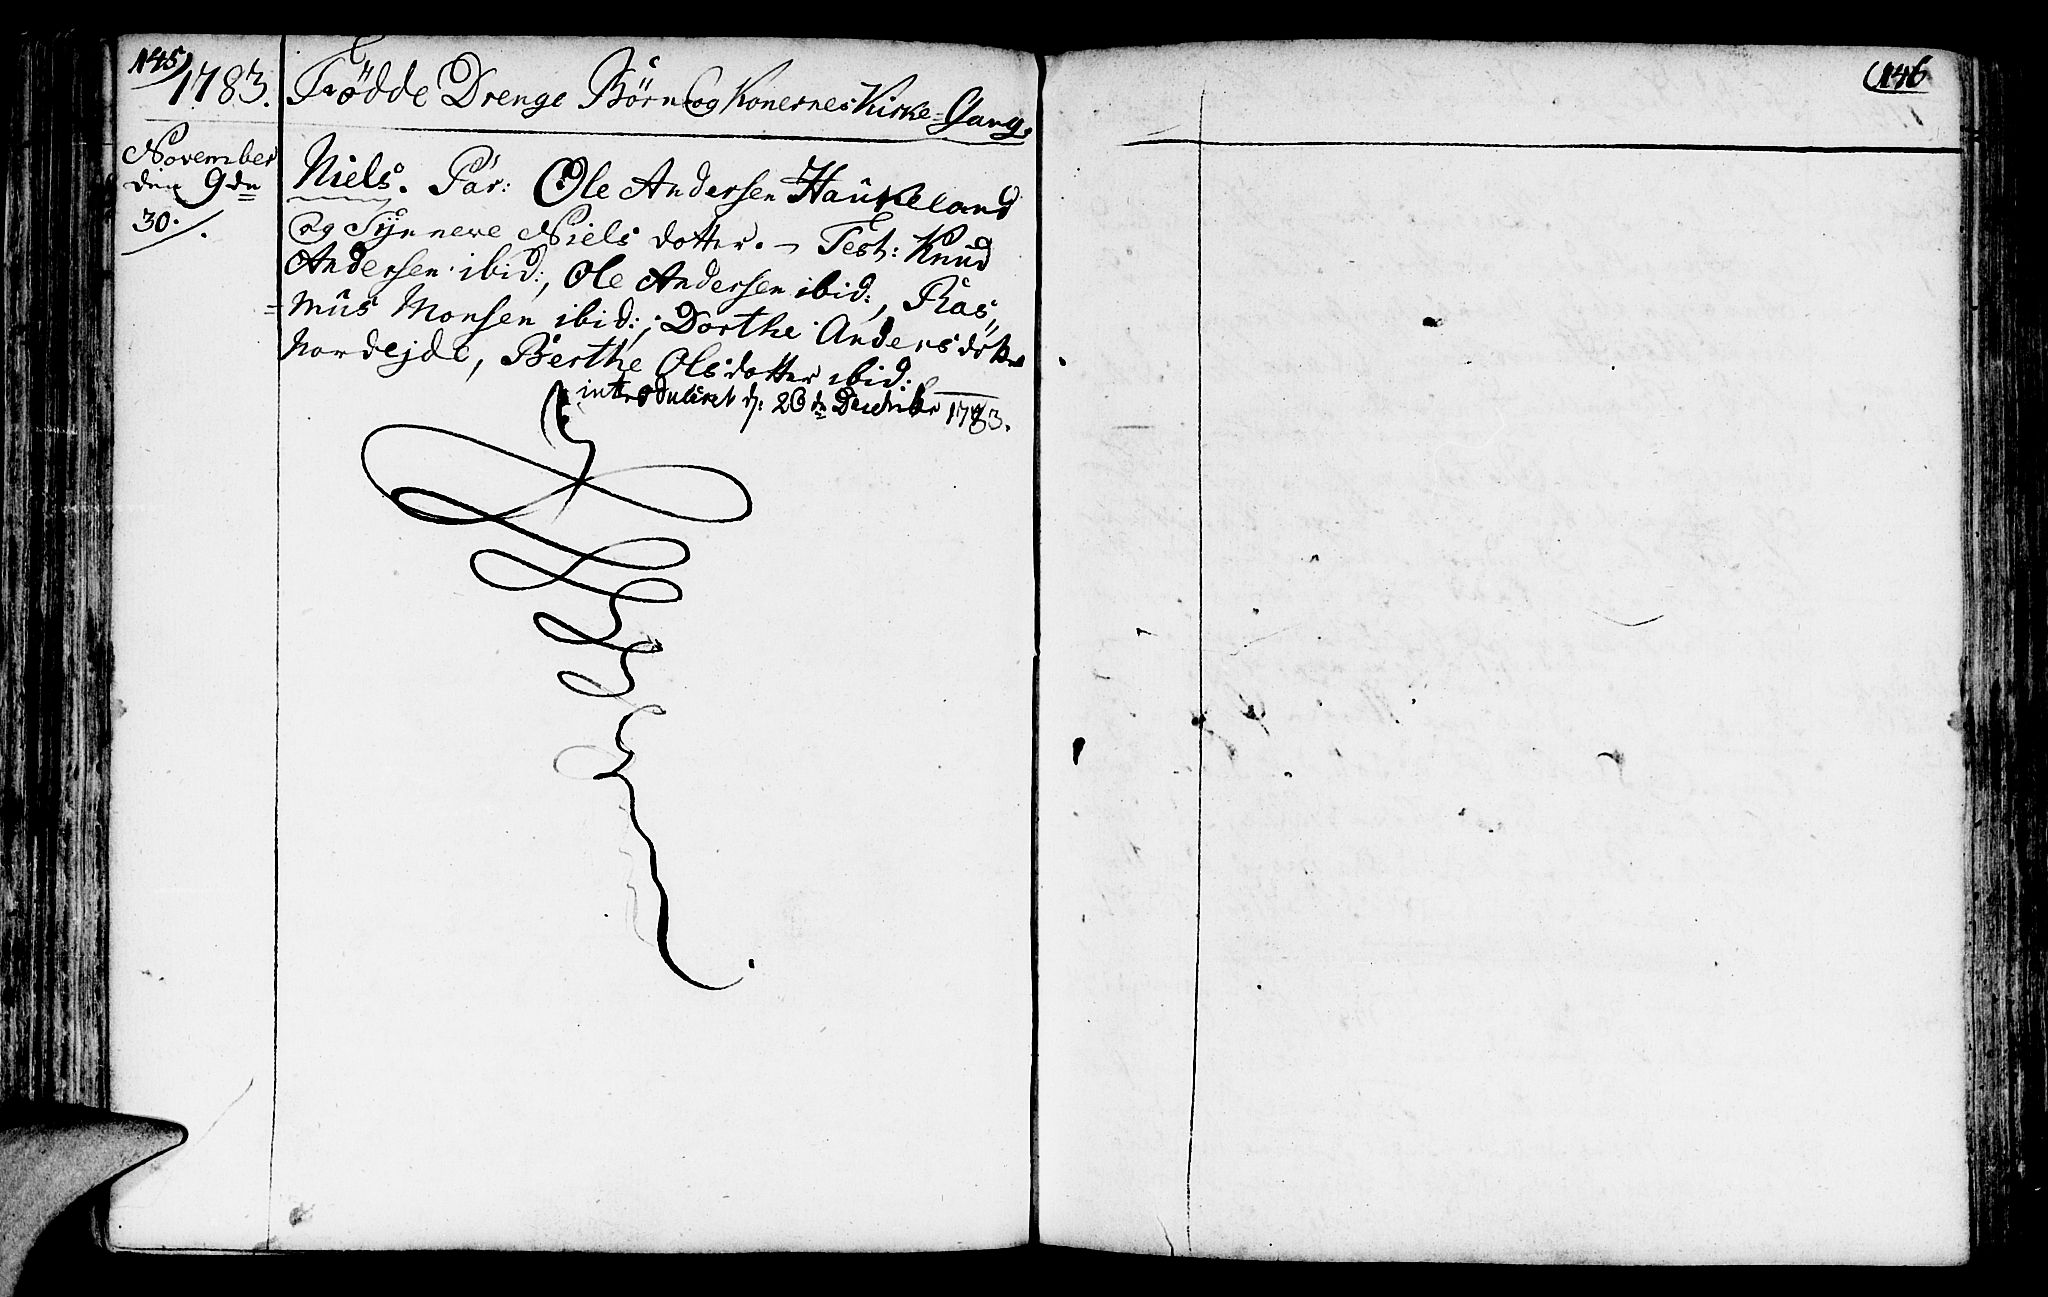 145)
1783. Födde Drenge Børn og Konernes Kirke-Gang.
November
den 9de
30./.
Niels. Par: Ole Andersen Haukeland
og Synneve Niels dotter. – Test: Knud
Andersen ibid:, Ole Andersen ibid:, Ras„
=mus Monsen ibid:, Dorthe Andersdotter
Nordejde, Berthe Olsdotter ibid:
introduceret d: 26de December 1783.
(146